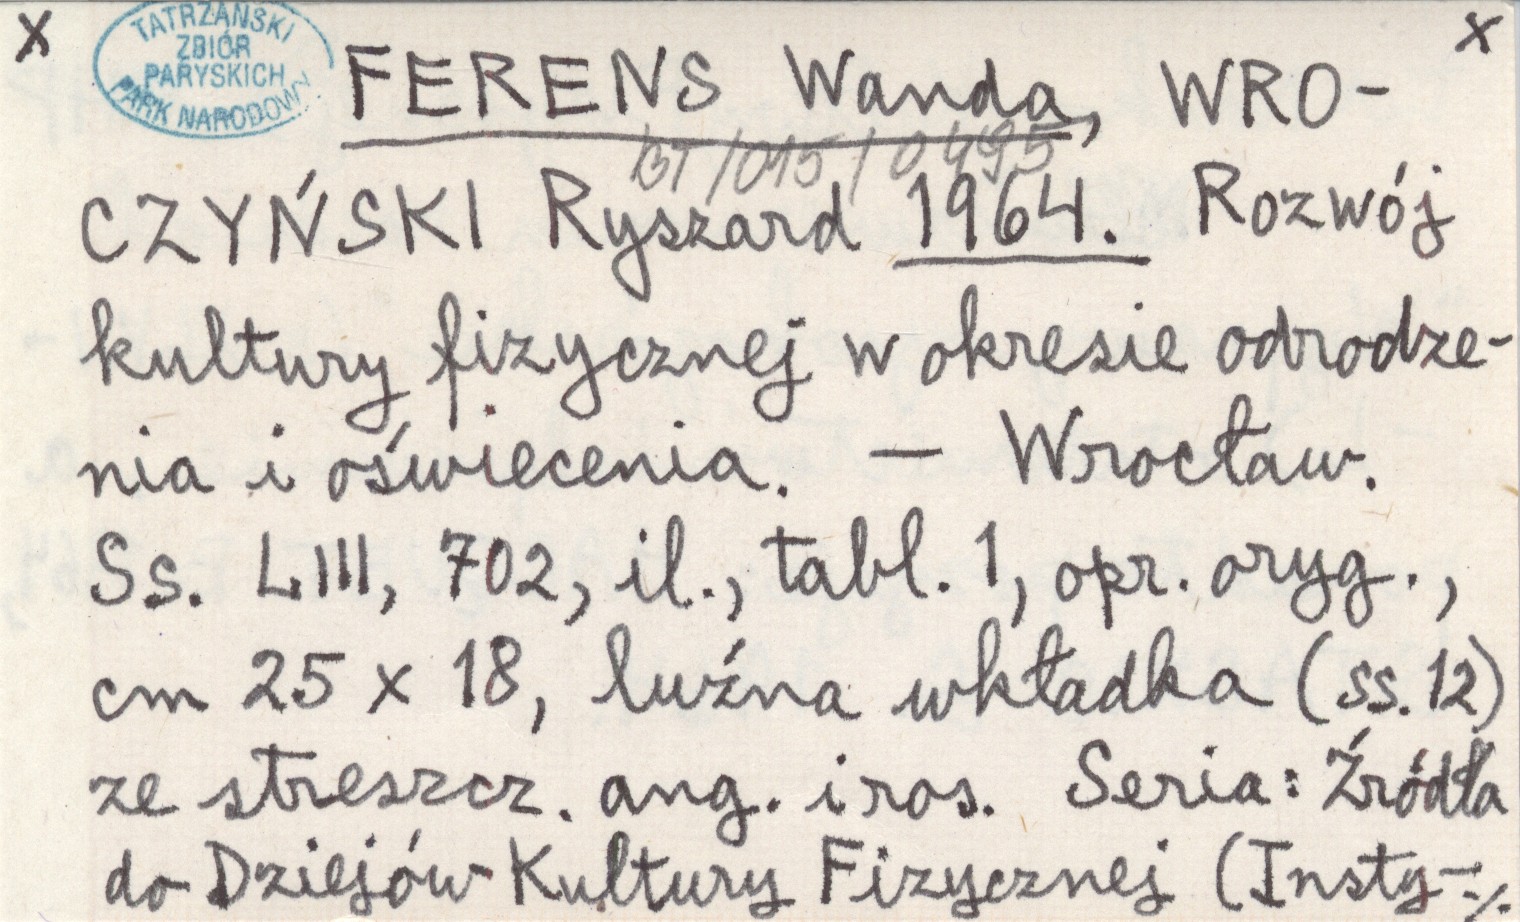 x
TATRZAŃSKI
ZBIÓR
PARYSKICH
PARK NARODOWY
x
FERENS Wanda, WRO-
BT/015/0495
CZYŃSKI Ryszard 1964. Rozwój
kultury fizycznej w okresie odrodze-
nia i oświecenia. — Wrocław.
Ss. LIII, 702, il., tabl. 1, opr. oryg.,
cm 25 x 18, luźna wkładka (ss. 12)
ze streszcz. ang. i ros. Seria: Źródła
do Dziejów Kultury Fizycznej (Insty-./.